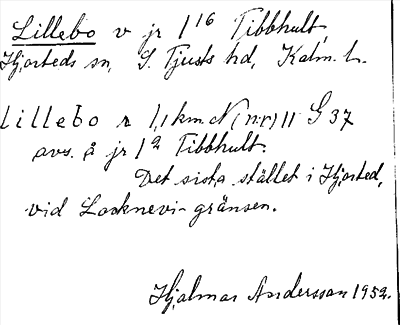 Lillebo v jr 1¹⁶ Tibbhult,
Hjorteds sn, S. Tjusts hd, Kalm. l.
Lillebo r 1,1 km. N (n.r) 11 S 37
avs. å jr 1² Tibbhult.
Det sista stället i Hjorted,
vid Locknevi-gränsen.
Hjalmar Andersson 1952.